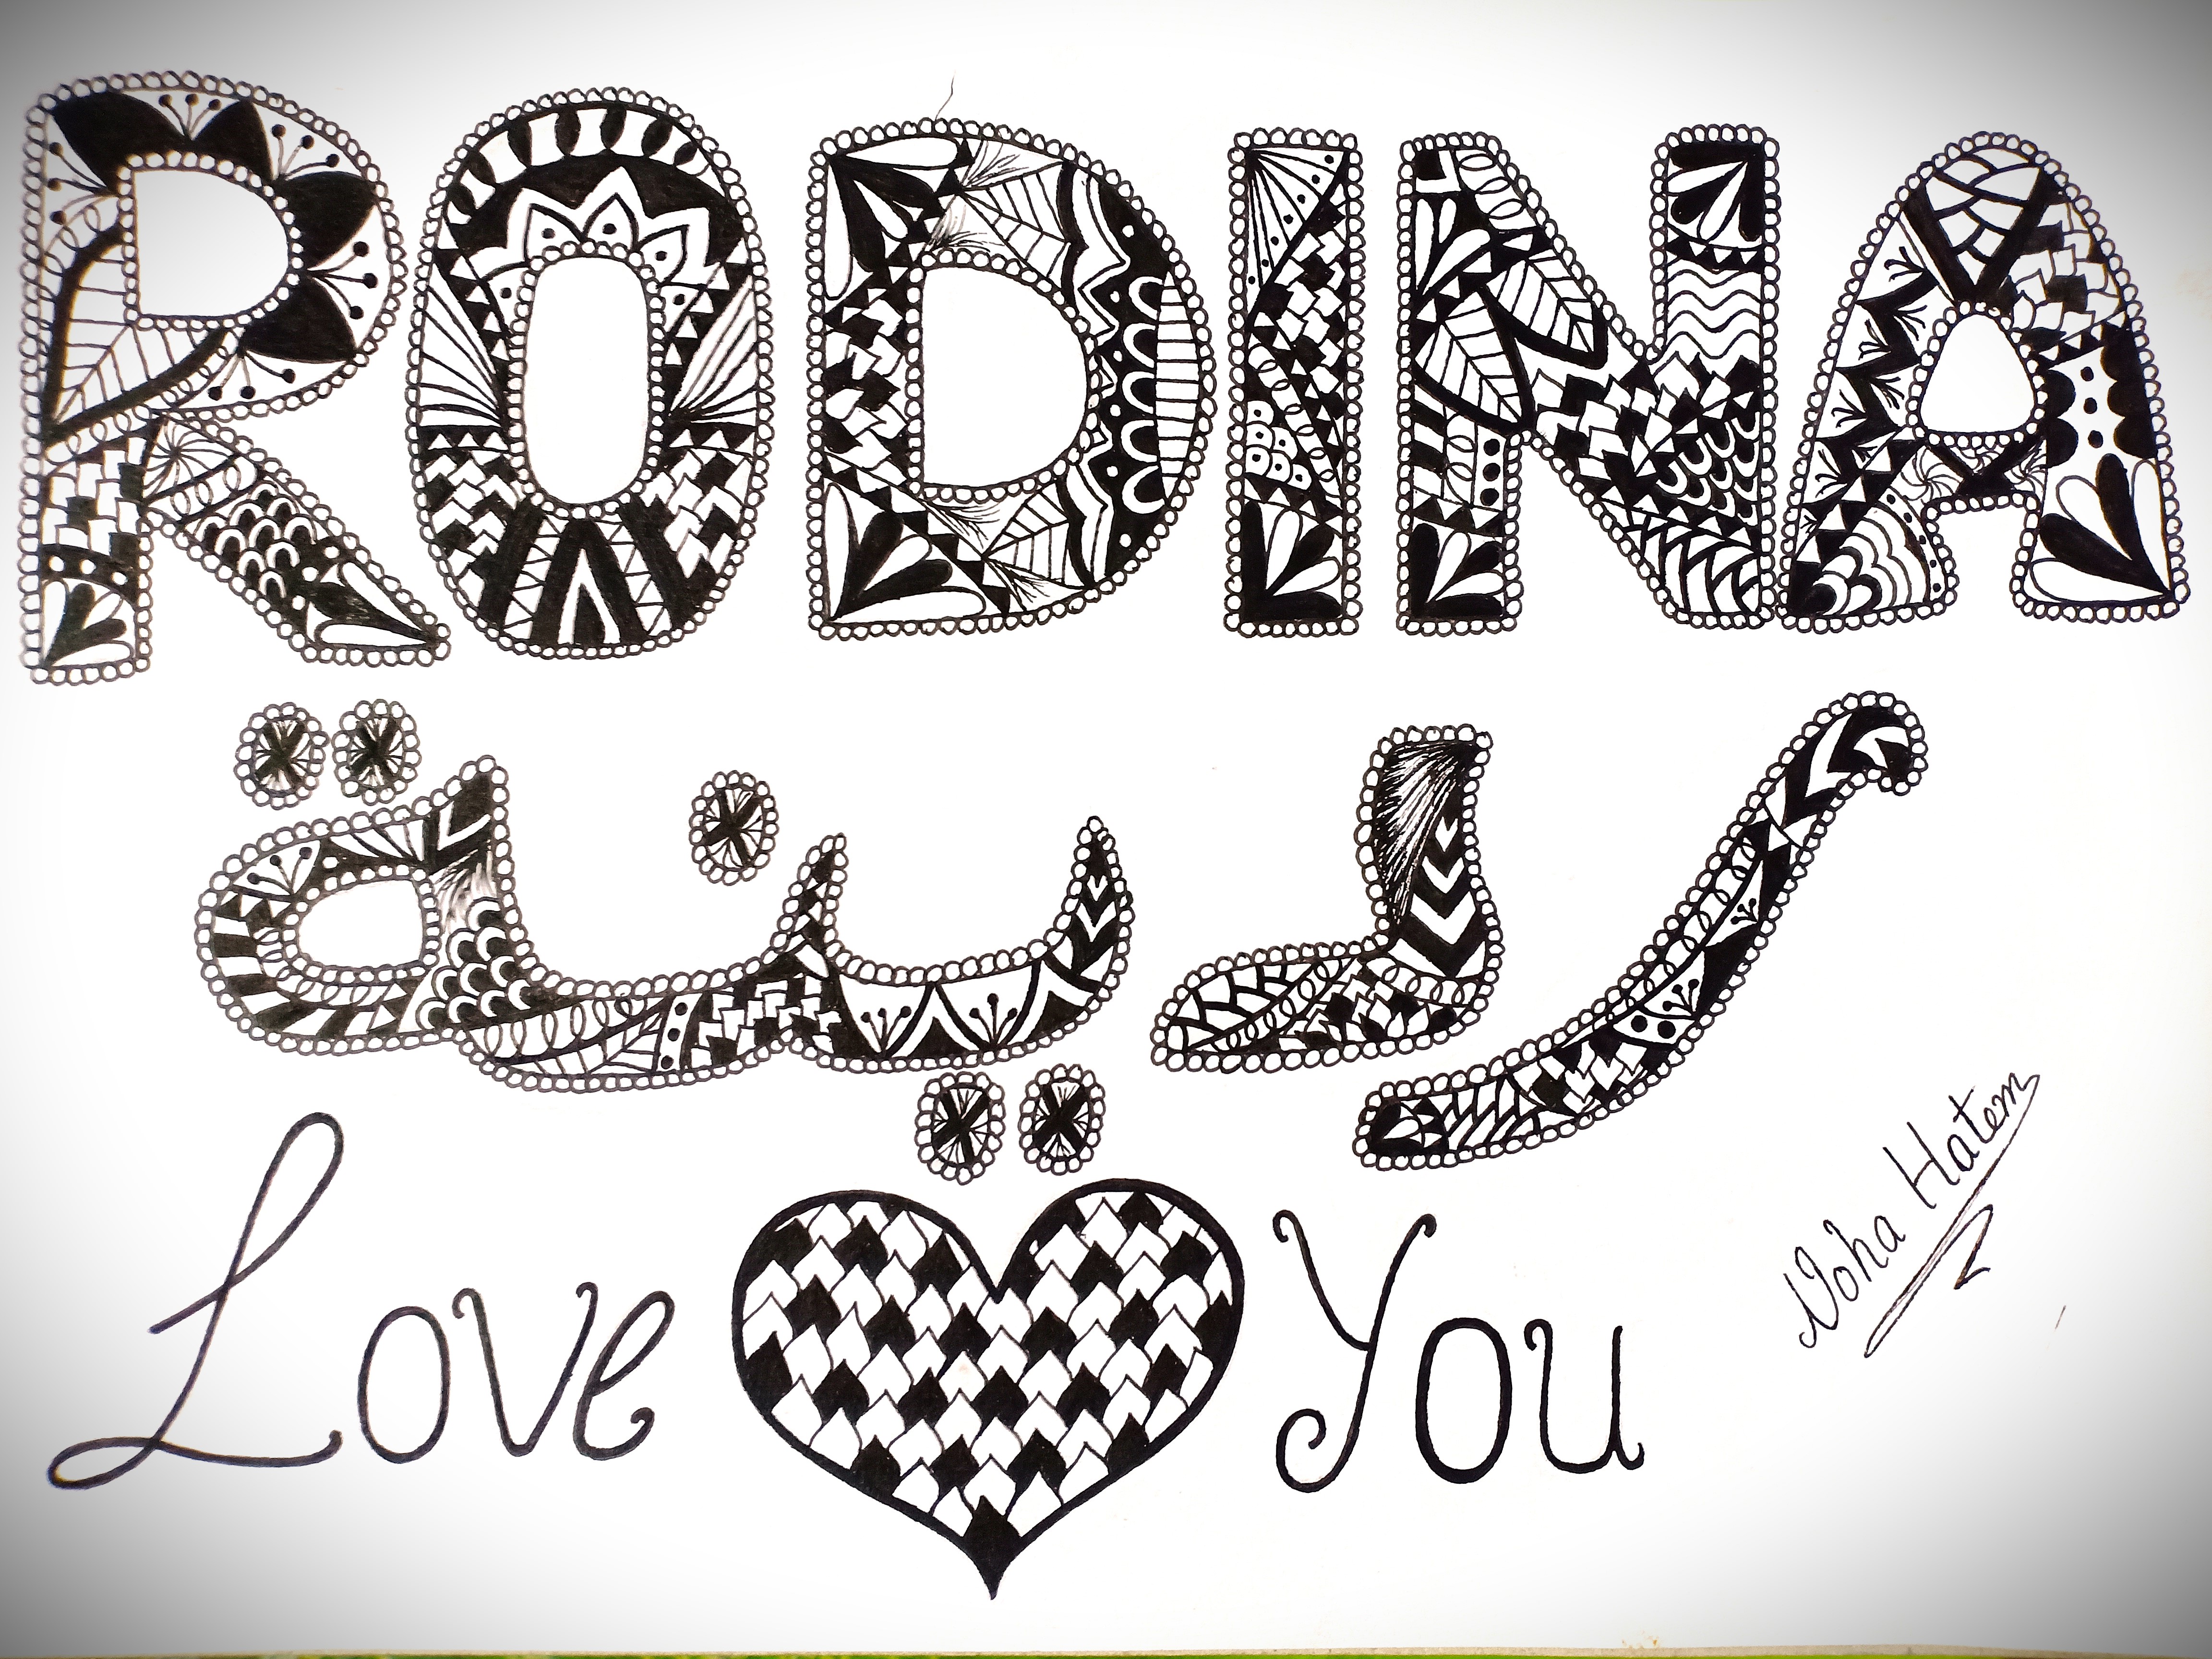 RODINA
ردينة
Love You
Noha Hatem